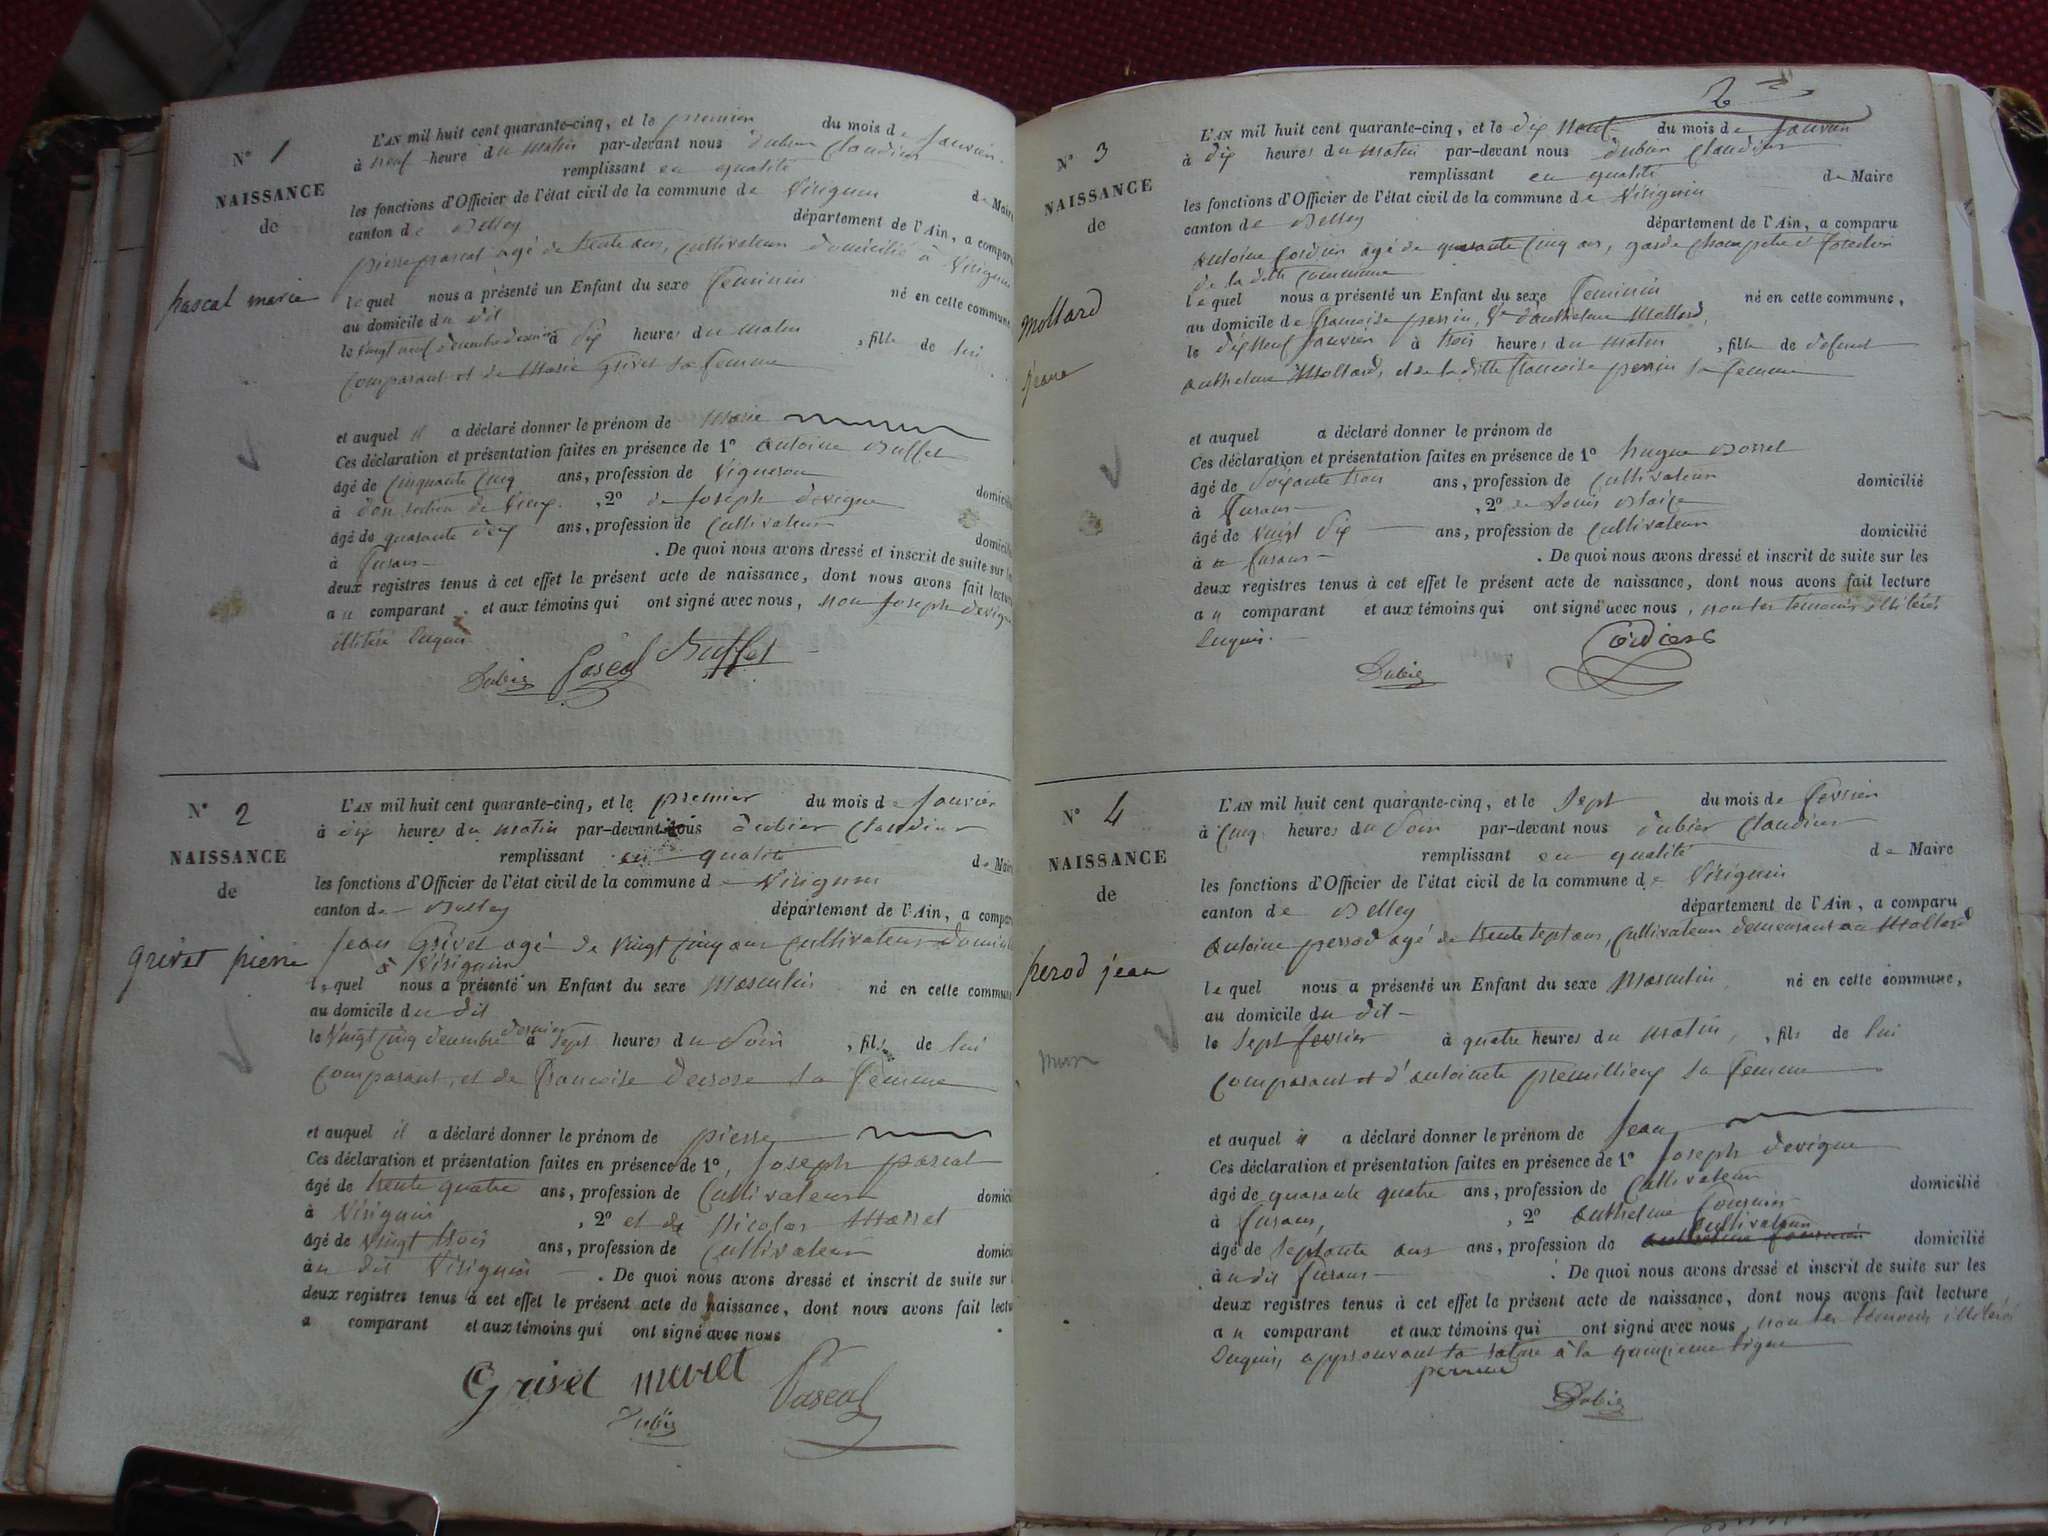 N° 1
NAISSANCE
de
pascal marie
L'AN mil huit cent quarante-cinq, et le premier du mois de Janvier
à neuf heure du matin par-devant nous Dubier Claudius
remplissant en qualité de Maire
les fonctions d'Officier de l'état civil de la commune de Virignin
canton de Belley département de l'Ain, a comparu
pierre pascal agé de trente ans, cultivateur domicilié à Virignin
lequel nous a présenté un Enfant du sexe feminin né en cette commune
au domicile du dit
le vingt neuf decembre dernier à dix heures du matin, fille de lui
comparant et de Marie Grivet sa femme
et auquel il a déclaré donner le prénom de Marie
Ces déclaration et présentation faites en présence de 1° Antoine Buffet
âgé de cinquante cinq ans, profession de Vigneron domicilié
à section de , 2° de Joseph devigne
âgé de quarante ans, profession de Cultivateur domicilié
à fusans . De quoi nous avons dressé et inscrit de suite sur les
deux registres tenus à cet effet le présent acte de naissance, dont nous avons fait lecture
au comparant et aux témoins qui ont signé avec nous, non Joseph devigne
illitéré Enquis
Dubier Pascal Buffet
N° 2
NAISSANCE
de
grivet pierre
L'AN mil huit cent quarante-cinq, et le premier du mois de Janvier
à dix heures du matin par-devant nous Dubier Claudius
remplissant en qualité de Maire
les fonctions d'Officier de l'état civil de la commune de Virignin
canton de Belley département de l'Ain, a comparu
Jean Grivet agé de vingt cinq ans cultivateur domicilié
à Virignin
lequel nous a présenté un Enfant du sexe Masculin né en cette commune
au domicile du dit
le vingt cinq decembre dernier à sept heures du soir, fils de lui
comparant, et de francoise sa femme
et auquel il a déclaré donner le prénom de pierre
Ces déclaration et présentation faites en présence de 1°, Joseph pascal
âgé de trente quatre ans, profession de Cultivateur domicilié
à Virignin , 2° et de Nicolas
âgé de vingt trois ans, profession de cultivateur domicilié
au dit Virignin . De quoi nous avons dressé et inscrit de suite sur
deux registres tenus à cet effet le présent acte de naissance, dont nous avons fait lecture
a comparant et aux témoins qui ont signé avec nous
Grivet Pascal
Dubier
2
N° 3
NAISSANCE
de
Mollard
L'AN mil huit cent quarante-cinq, et le dix neuf du mois de Janvier
à dix heures du matin par-devant nous Dubier Claudius
remplissant en qualité de Maire
les fonctions d'Officier de l'état civil de la commune de Virignin
canton de Belley département de l'Ain, a comparu
Antoine Cordier agé de quarante cinq ans, garde champetre et forestier
de la dite commune
lequel nous a présenté un Enfant du sexe feminin né en cette commune,
au domicile de francoise perrin, Ve d'anthelme Mollard,
le dix neuf Janvier à trois heures du matin, fille de defunt
anthelme Mollard, et de la ditte francoise perrin sa femme
et auquel a déclaré donner le prénom de
Ces déclaration et présentation faites en présence de 1° hugue
âgé de soixante trois ans, profession de Cultivateur domicilié
à fusans , 2° de Louis Blaise
âgé de vingt ans, profession de cultivateur domicilié
à fusans . De quoi nous avons dressé et inscrit de suite sur les
deux registres tenus à cet effet le présent acte de naissance, dont nous avons fait lecture
au comparant et aux témoins qui ont signé avec nous, non les témoins illitérés
Enquis.
Cordier
Dubier
N° 4
NAISSANCE
de
perod jean
L'AN mil huit cent quarante-cinq, et le sept du mois de fevrier
à cinq heures du soir par-devant nous Dubier Claudius
remplissant en qualité de Maire
les fonctions d'Officier de l'état civil de la commune de Virignin
canton de Belley département de l'Ain, a comparu
Antoine perrod agé de trente sept ans, cultivateur demeurant au Mollard
lequel nous a présenté un Enfant du sexe Masculin, né en cette commune,
au domicile du dit
le sept fevrier à quatre heures du matin, fils de lui
comparant et d'antoinete premillieux sa femme
et auquel il a déclaré donner le prénom de Jean
Ces déclaration et présentation faites en présence de 1° Joseph devigne
âgé de quarante quatre ans, profession de Cultivateur domicilié
à fusans, , 2° Anthelme
cultivateur
âgé de septante ans ans, profession de domicilié
au dit fusans . De quoi nous avons dressé et inscrit de suite sur les
deux registres tenus à cet effet le présent acte de naissance, dont nous avons fait lecture
au comparant et aux témoins qui ont signé avec nous, non les témoins illitérés
Enquis, approuvant la rature à la quinzieme ligne
Dubier